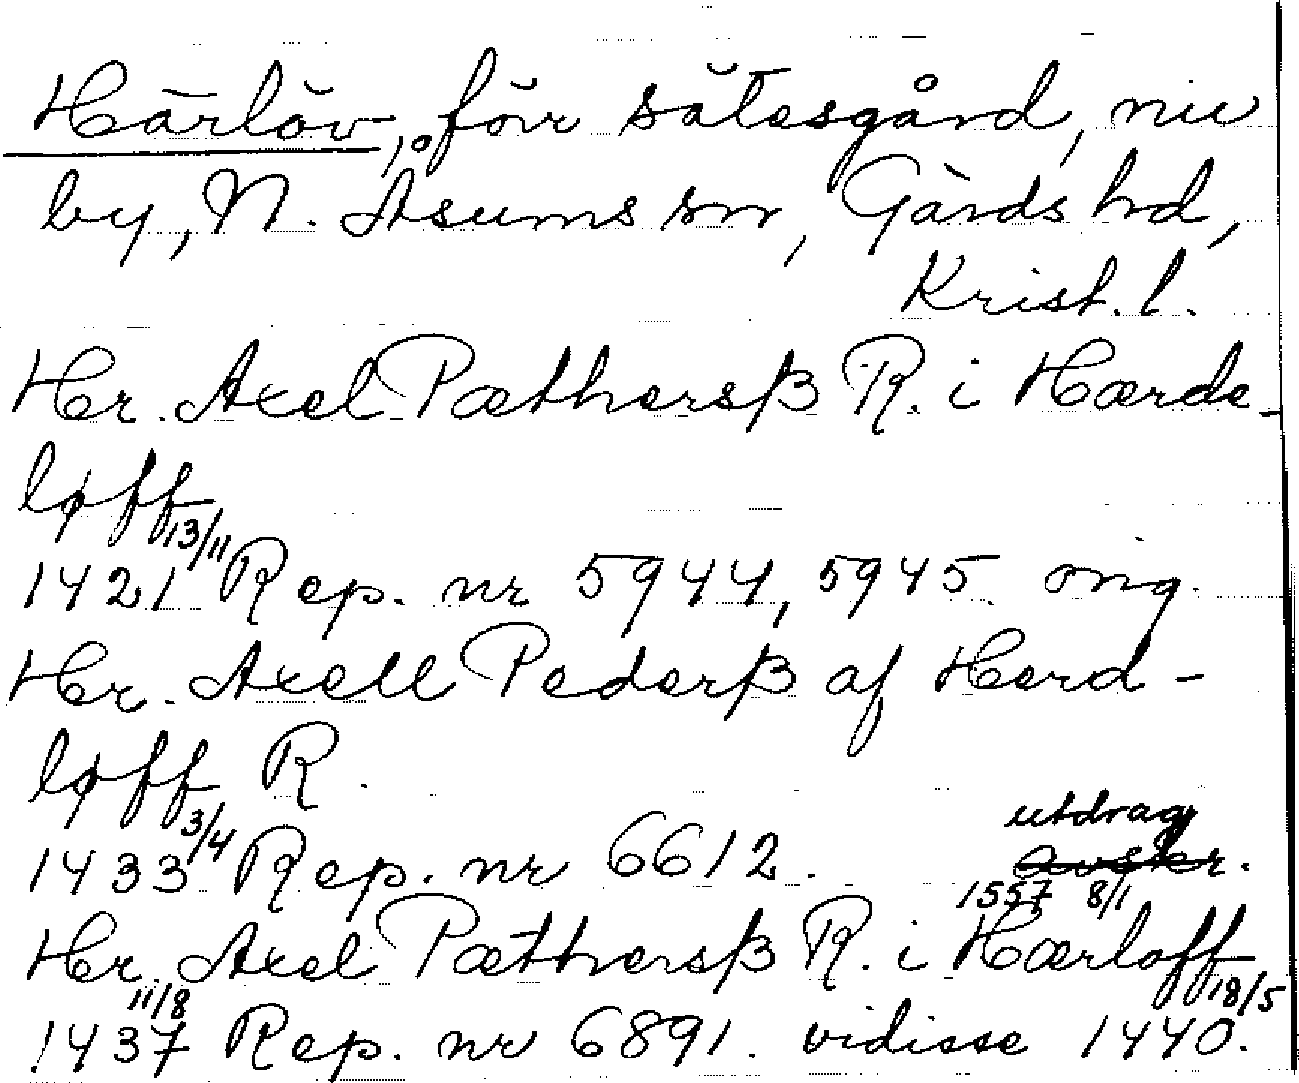 Härlöv, förr sätesgård, nu
by, N. Åsums sn, Gärds hd,
Krist. l.
Hr. Axel Pæthersß R. i Hærde-
løff
1421 13/11 Rep. nr 5944, 5945 orig.
Hr. Axell Pederß af Herd-
løff R.
utdrag
1433 3/4 Rep. nr 6612. avskr.
1557 8/1
Hr. Axel Pæthersß R. i Hærloff
1437 11/8 Rep. nr 6891. vidisse 1440. 18/5